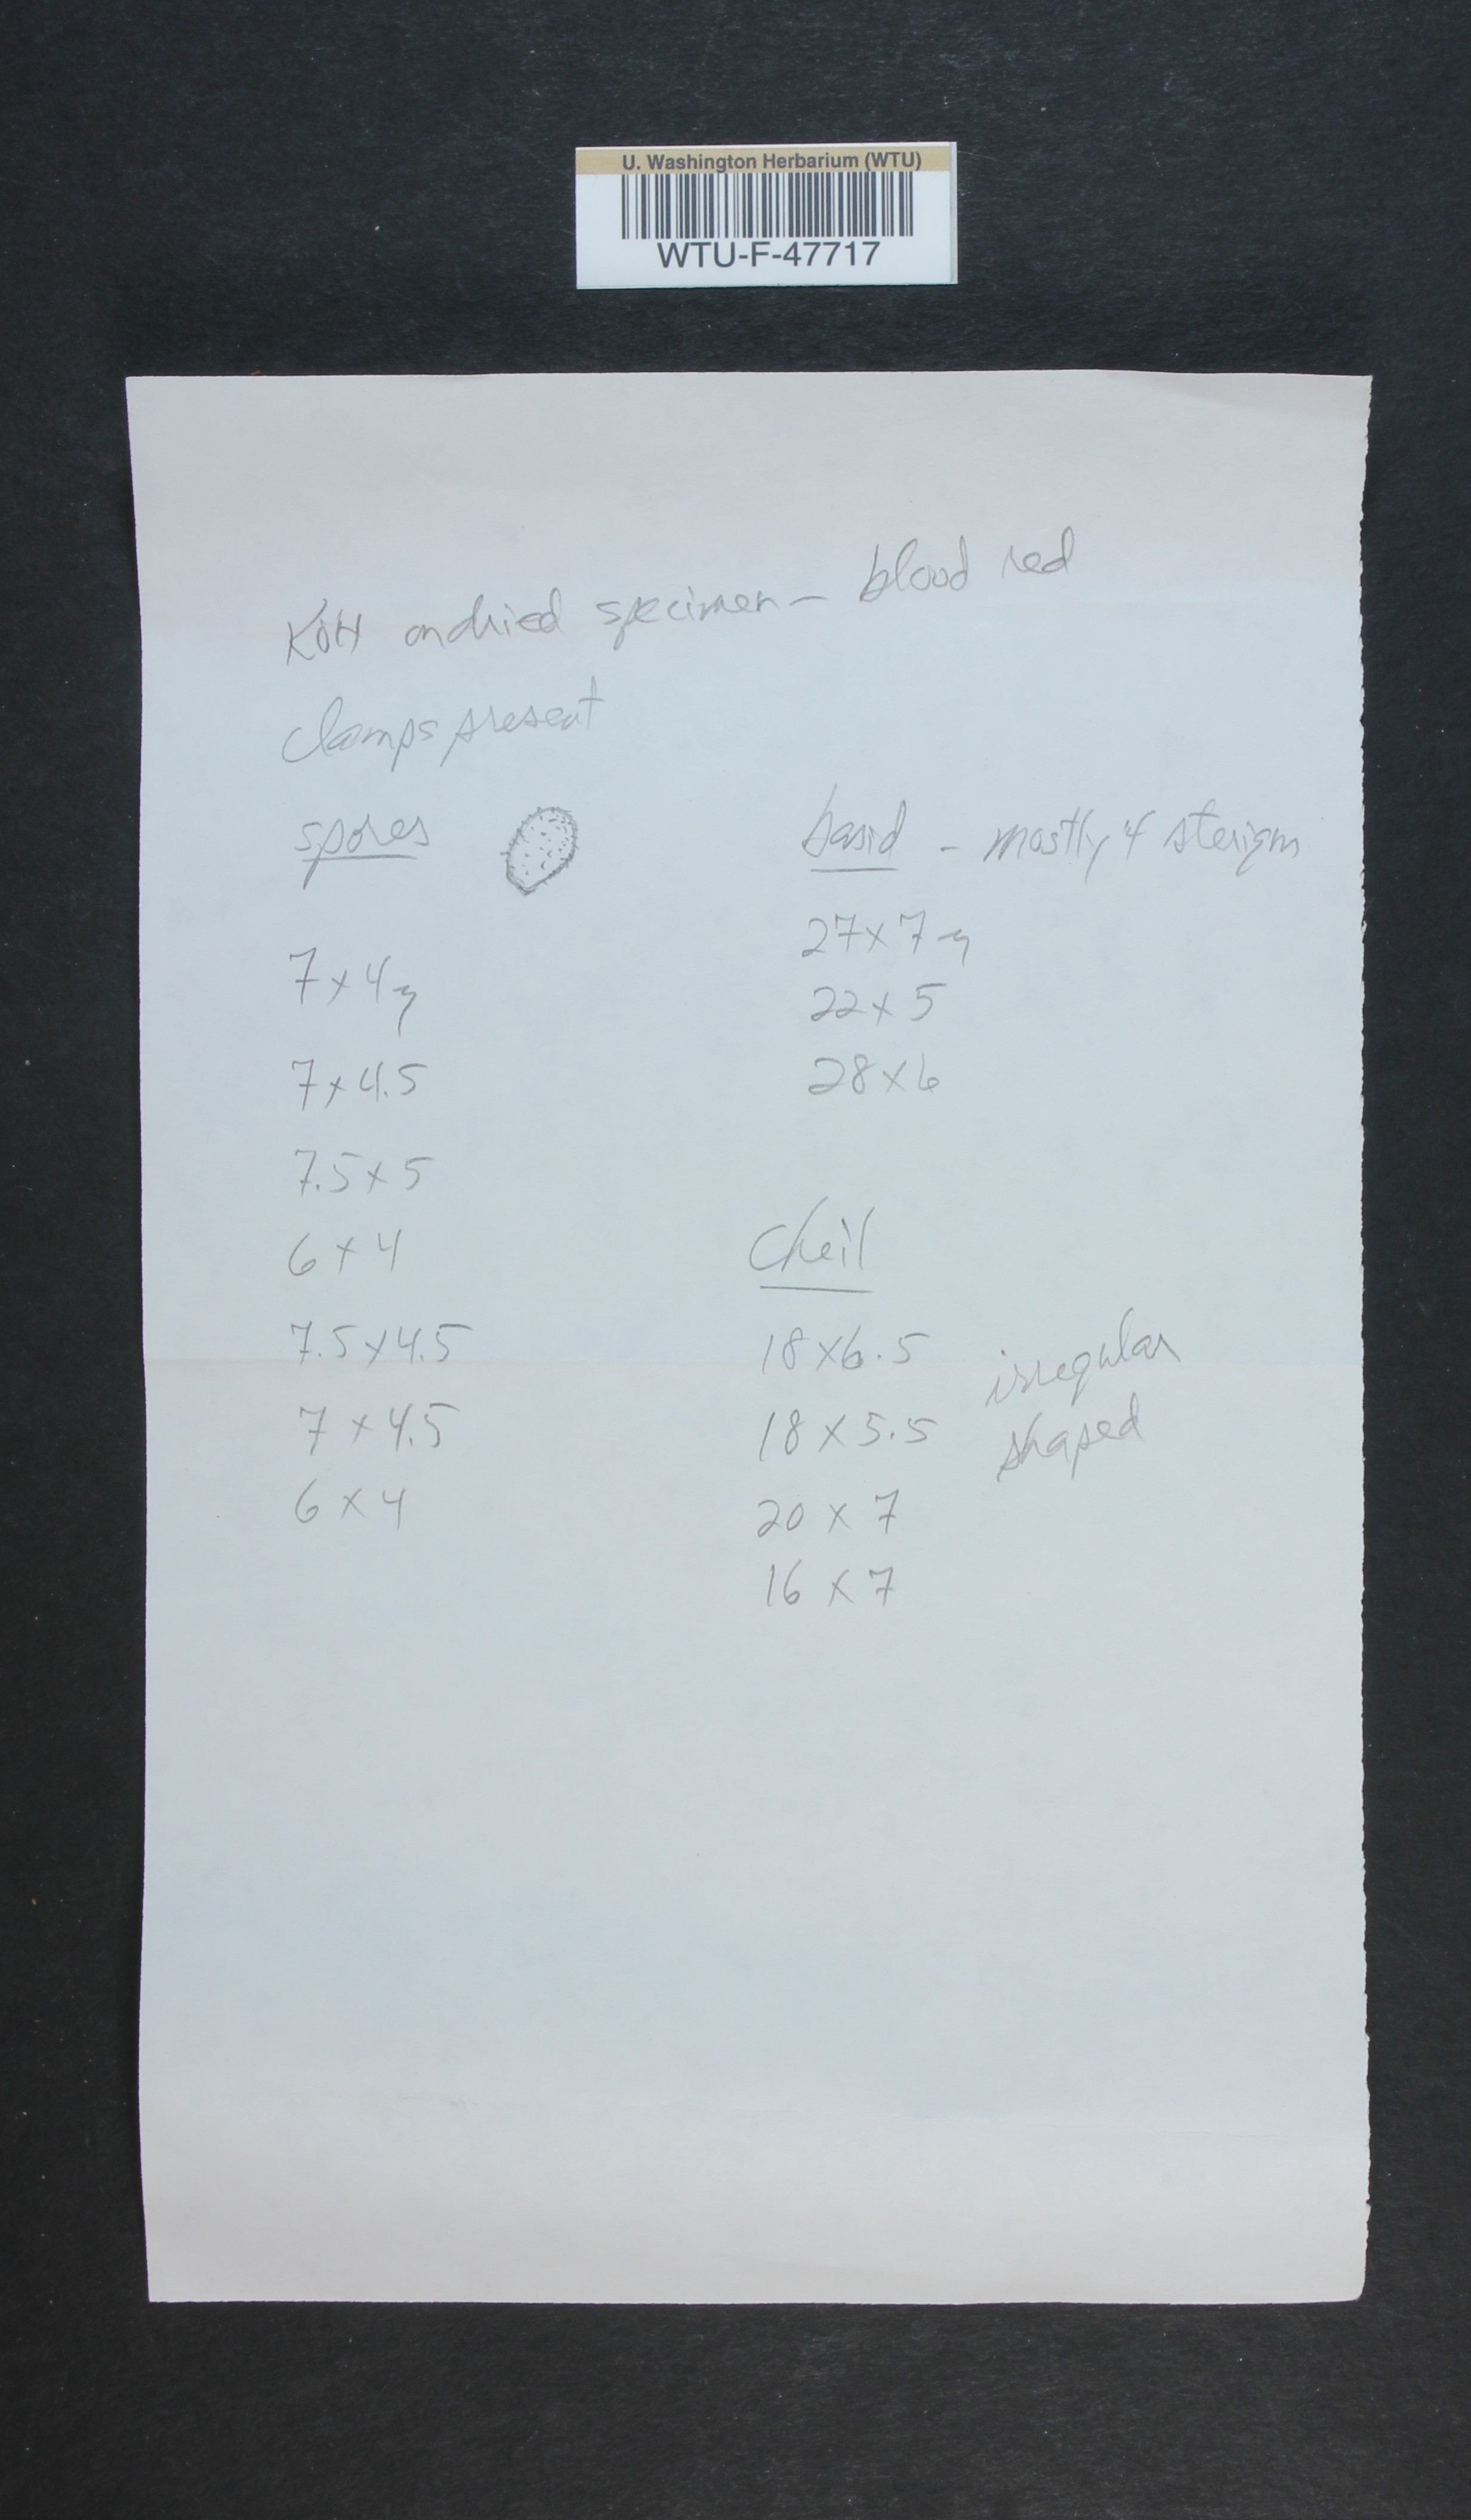 U. Washington Herbarium (WTU)
WTU-F-47717
KOH on dried specimen - blood red
clamps present
spores
7 x 4 μ
7 x 4.5
7.5 x 5
6 x 4
7.5 x 4.5
7 x 4.5
6 x 4
basid - mostly 4 sterigm
27 x 7 μ
22 x 5
28 x 6
Cheil
18 x 6.5 irregular
18 x 5.5 shaped
20 x 7
16 x 7